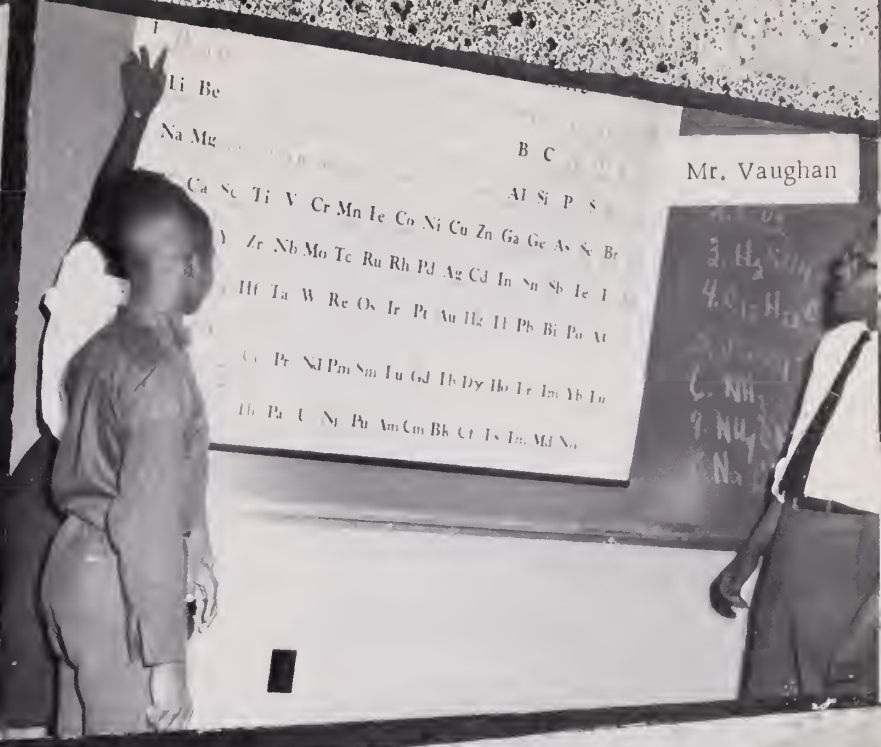 Li Be
B C
Na Mg
Al Si P S
Ca Sc Ti V Cr Mn Fe Co Ni Cu Zn Ga Ge As Se Br
Y Zr Nb Mo Tc Ru Rh Pd Ag Cd In Sn Sb Te I
Hf Ta W Re Os Ir Pt Au Hg Tl Pb Bi Po At
Ce Pr Nd Pm Sm Eu Gd Tb Dy Ho Er Tm Yb Lu
Th Pa U Np Pu Am Cm Bk Cf Es Fm Md No
Mr. Vaughan
3. H₂
4. C₁₂ H₂₂
6. NH₃
7. NH₄
Na